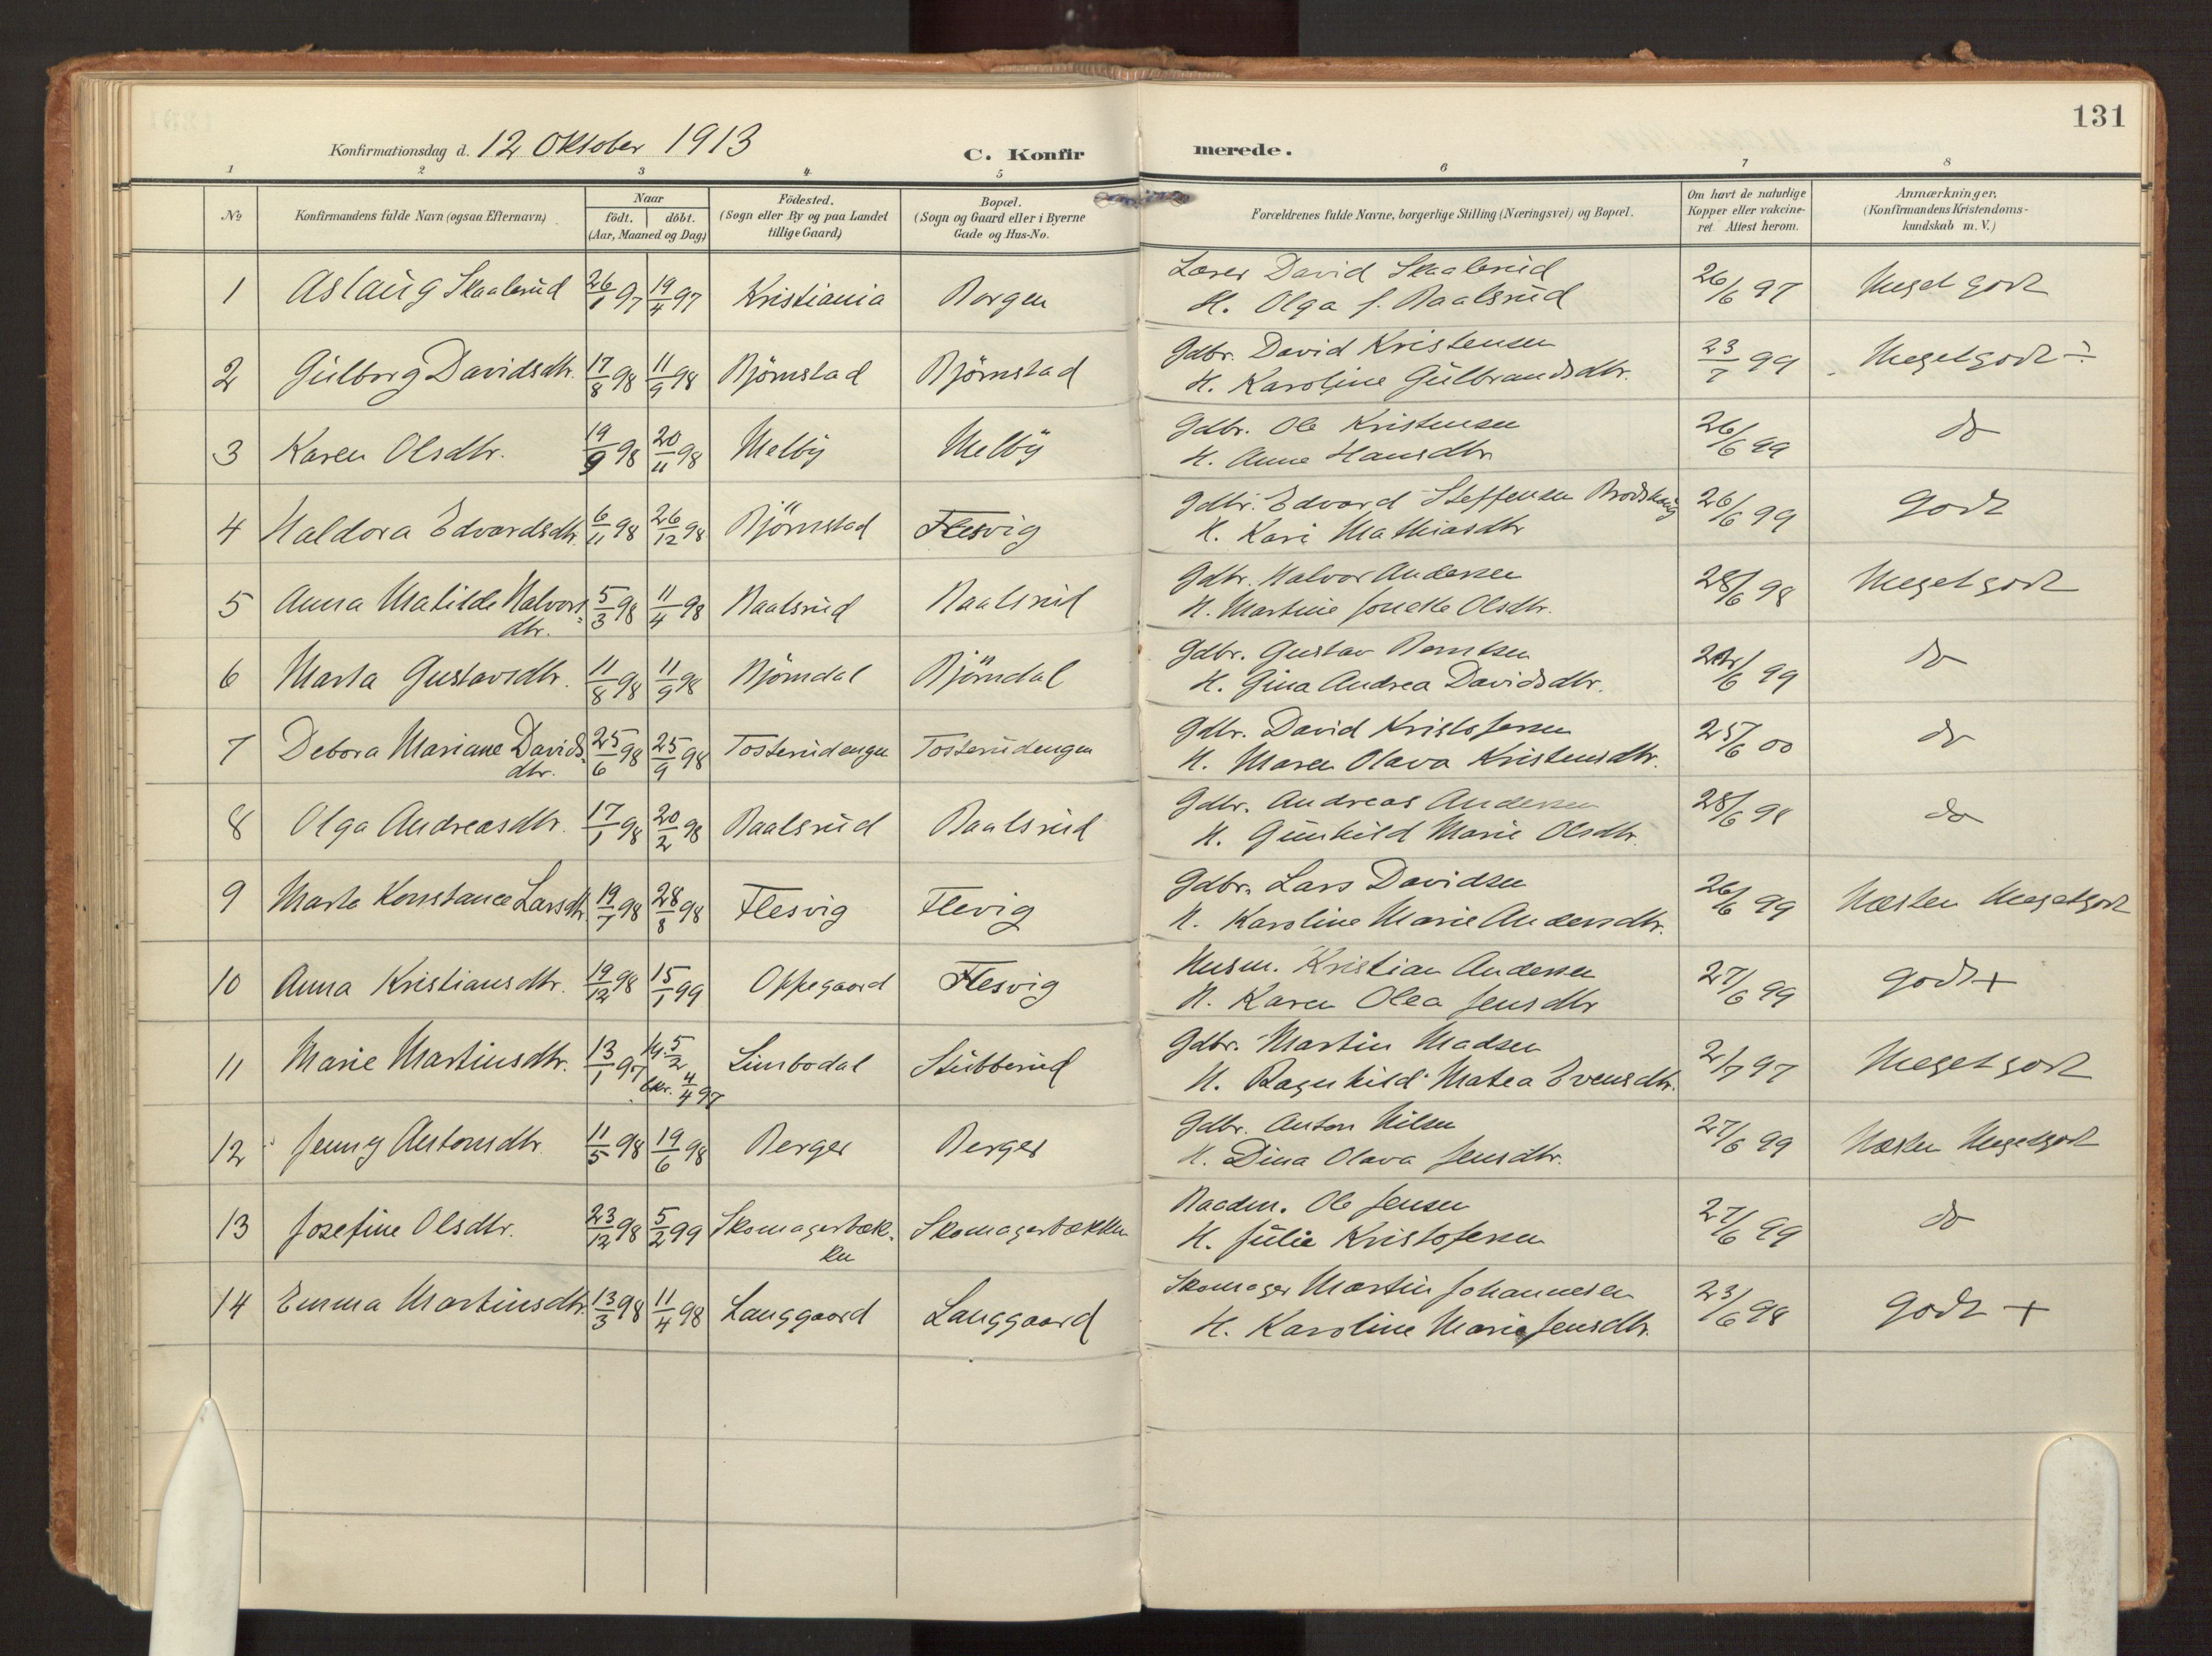 131
Konfirmationsdag d. 12 Oktober 1913
C. Konfirmerede.
1 2 3 4 5 6 7 8
No
Konfirmandens fulde Navn (ogsaa Efternavn)
Naar
födt. döbt.
(Aar, Maaned og Dag)
Födested.
(Sogn eller By og paa Landet
tillige Gaard)
Bopæl.
(Sogn og Gaard eller i Byerne
Gade og Hus-No.
Forældrenes fulde Navne, borgerlige Stilling (Næringsvei) og Bopæl.
Om havt de naturlige
Kopper eller vakcine-
ret. Attest herom.
Anmærkninger,
(Konfirmandens Kristendoms-
kundskab m. V.)
1 Aslaug Skaalerud 26/1 97 19/4 97 Kristiania Borgen
Lærer David Skaalerud
H. Olga f. Baalsrud
26/6 97 Meget godt
2 Gulborg Davidsdtr. 17/8 98 11/9 98 Björnstad Björnstad
Gdbr. David Kristensen
H. Karoline Gulbrandsdtr.
23/7 99 Meget godt ÷
3 Karen Olsdtr. 19/9 98 20/11 98 Melby Melby
Gdbr. Ole Kristensen
H. Anne Hansdtr.
26/6 99 do
4 Haldora Edvardsdtr. 6/11 98 26/12 98 Björnstad Flesvig
Gdbr. Edvard Steffensen Brodshaug
H. Kari Mathiasdtr
26/6 99 godt
5 Anna Matilde Halvors-
dtr.
5/3 98 11/4 98 Baalsrud Baalsrud
Gdbr. Halvor Andersen
H. Martine Jonette Olsdtr.
28/6 98 Meget godt
6 Marta Gustavsdtr. 11/8 98 11/9 98 Björndal Björndal
Gdbr. Gustav Berntsen
H. Gina Andrea Davidsdtr.
/6 99 do
7 Debora Mariane Davids-
dtr.
25/6 98 25/9 98 Tosterudengen Tosterudengen
Gdbr. David Kristofersen
H. Maren Olava Kristensdtr.
25/6 00 do
8 Olga Andreasdtr. 17/1 98 20/2 98 Baalsrud Baalsrud
Gdbr. Andreas Andersen
H. Gunhild Marie Olsdtr.
28/6 98 do
9 Marta Konstance Larsdtr 19/7 98 28/8 98 Flesvig Flevig
Gdbr. Lars Davidsen
H. Karoline Marie Andersdtr.
26/6 99 Næsten Meget godt
10 Anna Kristiansdtr. 19/12 98 15/1 99 Oppegaard Flesvig
Husm. Kristian Andersen
H. Karen Olea Jensdtr
27/6 99 godt +
11 Marie Martinsdtr. 13/1 97 Hj. 5/2
bkr. 4/4 97
Limbodal Stubberud
Gdbr. Martin Madsen
H. Ragnhild Matea Evensdtr.
2/7 97 Meget godt
12 Jenny Antonsdtr. 11/5 98 19/6 98 Berger Berger
Gdbr. Anton Nilsen
H. Dina Olava Jensdtr.
27/6 99 Næsten Meget godt
13 Josefine Olsdtr. 23/12 98 5/2 99 Skomagerbæk-
ken
Skomagerbækken
Baadm. Ole Jensen
H. Julie Kristofersen
27/6 99 do
14 Emma Martinsdtr. 13/3 98 11/4 98 Langgaard Langgaard
Skomager Martin Johannesen
H. Karoline Marie Jensdtr.
23/6 98 godt +